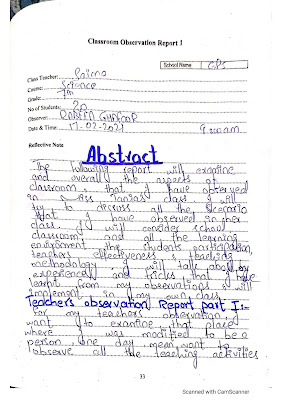 Classroom Observation Report 1
School Name GPS
Class Teacher:
Course: Science
Grade: 7th
No of Students: 20
Observer:
Date & Time: 17-02-2021 9:00am
Reflective Note
Abstract
The following report will examine
and overall the aspects of
classroom that I have observed
in Miss Tania's class I will
try to discuss all the scenario
that I have observed in her
class. I will consider school
classroom and all the learning
environment the students participation
teachers effectiveness & teaching
methodology. I will talk about my
experience and tricks that I have
learnt from my observations I will
implement in my own class.
Teacher's observation Report part I:-
For my teachers observation, I
want to examine that place
where I was modified to be a
person one day mean want to
observe all the teaching activities
33
Scanned with CamScanner